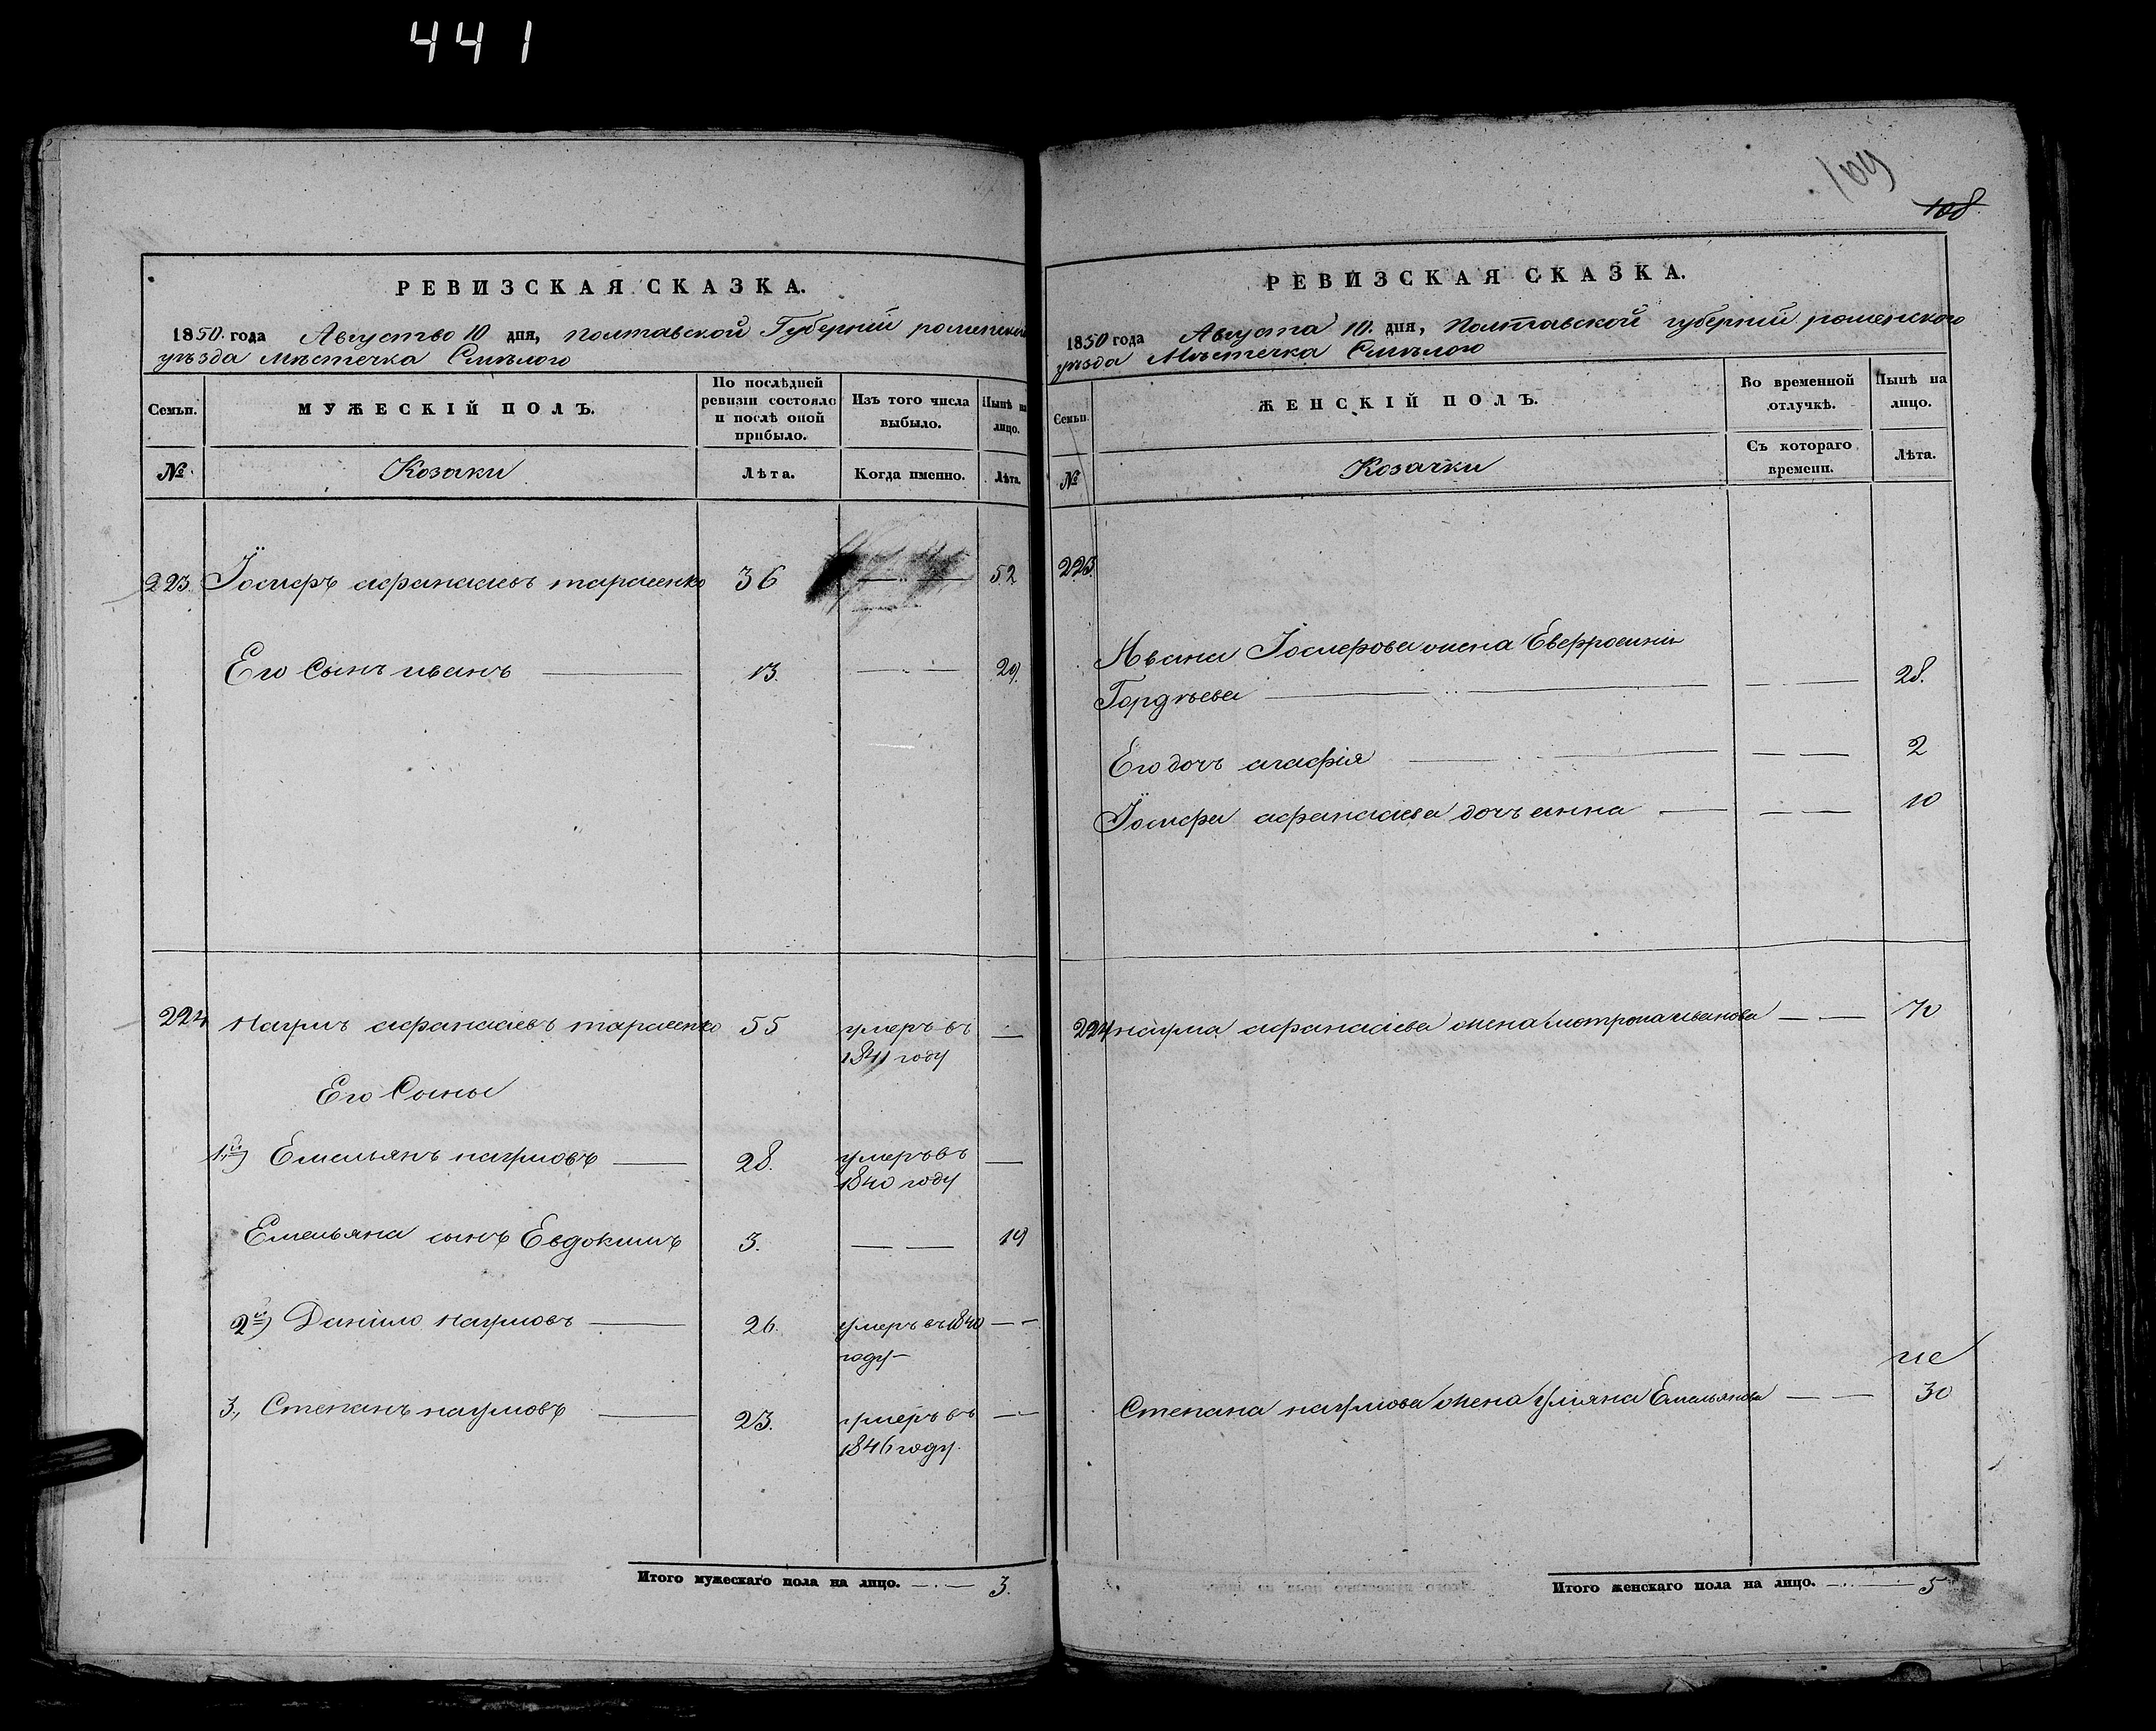 441
РЕВИЗСКАЯ СКАЗКА.
1850 года Августъво 10 дня, полтавской Губерніи роменского
уѣзда мѣстечка Смѣлого
Семьи.
МУЖЕСКІЙ ПОЛЪ.
По послѣдней
ревизіи состояло
и послѣ оной
прибыло.
Изъ того числа
выбыло.
Нынѣ на
лицо.
№
Козаки
Лѣта.
Когда именно.
Лѣта.
223. Їосифъ афанасіевъ тарасенко 36 — 52
Его Сынъ иванъ — 13. — 29.
224 Наумъ афанасіевъ тарасенко 55 умеръ въ —
1841 году
Его Сыны
1й) Емельянъ наумовъ — 28. умеръ въ —
1840 году
Емельяна сынъ Евдокимъ 3. — — 19
2й) Данило наумовъ — 26. умеръ въ 1840 —
году —
3., Степанъ наумовъ — 23. умеръ въ —
1846 году.
Итого мужескаго пола на лицо. — 3.
109
108.
РЕВИЗСКАЯ СКАЗКА.
1850 года Августа 10. дня, Полтавской губерніи роменского
уѣзда Мѣстечка Смѣлого
Семьи
ЖЕНСКІЙ ПОЛЪ.
Во временной
отлучкѣ.
Нынѣ на
лицо.
№
Козачки
Съ котораго
времени.
Лѣта.
223.
Ивана Іосифова жена Евфросинія
Гордѣева — — 28.
Его дочь агафія — — 2
Їосифа афанасіева дочь анна — — 10
224 наума афанасіева жена мотрона иванова — — 70
не
Степана наумова жена уліяна Емельянова — — 30
Итого женскаго пола на лицо. — 5